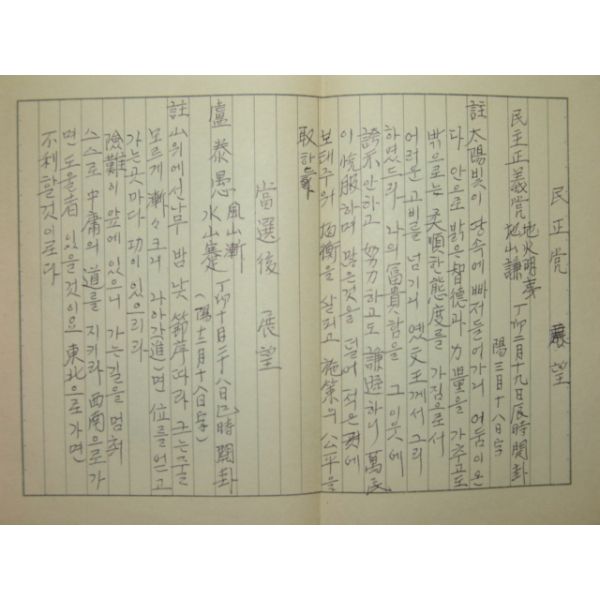 民正党 展望
民主正義党 地火明夷 丁卯二月十九日辰時開卦
地山謙 陽三月十八日字
註 太陽빛이 땅속에 빠저들어가니 어둠이 온
다 안으로 밝은 智德과 力量을 가추고도
밖으로는 柔順한 態度를 가짐으로서
어려운 고비를 넘기니 옛 文王께서 그리
하였드라 나의 富貴함을 그 이웃에
誇示안하고 努力하고도 謙遜하니 萬民
이 悅服하며 많은것을 덜어 적은 곳에
보태주의 均衡을 살피고 施策의 公平을
取하矣
當選後 展望
盧泰愚 風山漸 丁卯十月二十八日巳時開卦
水山蹇 (陽十二月十八日字)
註 山위에선 나무 밤낮 節序따라 크는줄
모르게 漸々크니 나아가(進)면 位를 얻고
가는곳마다 功이 있으리라
險難이 앞에 있으니 가는길을 멈춰
스스로 中庸의 道를 지키라 西南으로가
면 도울者 있을것이으 東北으로가면
不利할것이로다